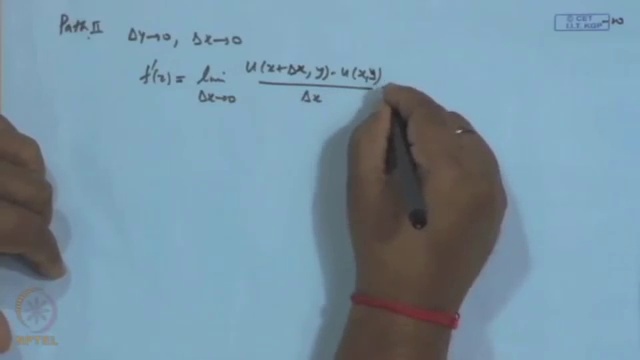 Path II Δy→0, Δx→0
f'(z) = lim Δx→0 U(x+Δx, y) - U(x,y) / Δx
© CET
I.I.T. KGP
NPTEL